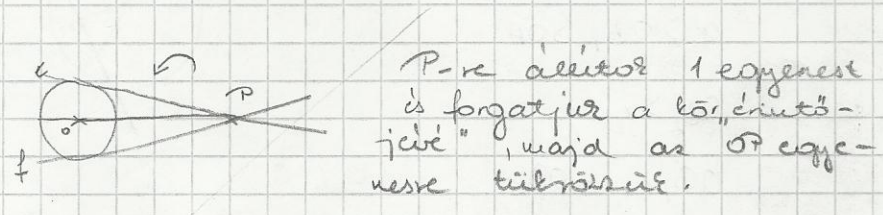 e
P
o
f
P-re állítok 1 egyenest
és forgatjuk a kör „érintő-
jévé”, majd az OP egye-
nesre tükrözzük.